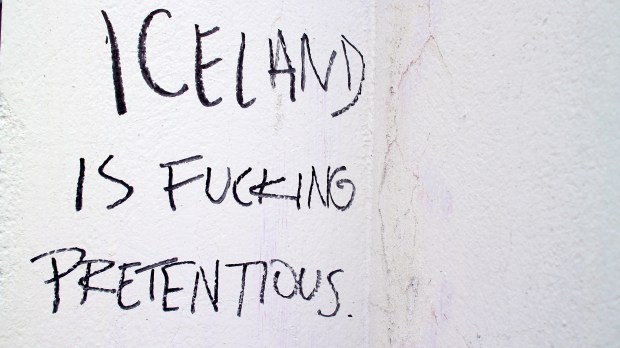 ICELAND
IS FUCKING
PRETENTIOUS.